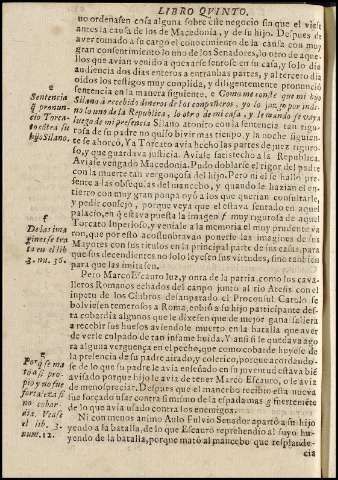 LIBRO QVINTO.
no ordenasen cosa alguna sobre este negocio sin que el viese
antes la causa de los de Macedonia, y de su hijo. Despues de
aver tomado a su cargo el conocimiento de la causa con muy
gran consentimiento lo uno de los Senadores, lo otro de aque-
llos que avian venido a quexarse sentose en su casa, y solo dio
audiencia dos dias enteros a entranbas partes, y al tercero dia
oidos los testigos muy conplida, y diligentemente pronunció
sentencia en la manera siguiente. e Como me conste que mi hijo
Silano à recebido dineros de los compañeros, yo lo juzgo por indi-
no lo uno de la Republica, lo otro de mi casa, y le mando se vaya
luego de mi presencia Silano atonito con la sentencia tan rigu-
rosa de su padre no quiso bivir mas tiempo, y la noche siguien-
te se ahorcó, Ya Torcato avia hecho las partes de juez riguro-
so, y que guardava justicia. Aviase satisfecho a la Republica.
Aviase vengado Macedonia. Pudo doblarse el rigor del padre
con la muerte tan vergonçosa del hijo. Pero ni el se halló pre-
sente a las obsequias del mancebo, y quando le hazian el en-
tierro con muy gran ponpa oyó a los que querian consultarle,
y pedir consejo, porque veya que el estava sentado en aquel
palacio, en q̃ estava puesta la imagen f muy rigurosa de aquel
Torcato Inperioso, y veniale a la memoria el muy prudente va
ron, que por esto acostunbravan ponerse las imagines de sus
Mayores con sus titulos en la principal parte de sus casas, para
que sus decendientes no solo leyesen sus virtudes, sino tanbien
para que las imitasen.
Pero Marco Escauro luz, y onra de la patria, como los cava-
lleros Romanos echados del canpo junto al rio Atesis con el
inpetu de los Cinbros desanparado el Proconsul Catulo se
bolviesen temerosos a Roma, enbió a su hijo participante des-
ta cobardia algunos que le dixesen que de mejor gana saliera
a recebir sus huesos aviendole muerto en la batalla que aver
de verle culpado de tan infame huida. Y ansi si le quedava ago
ra alguna verguença en el pecho, que como cobarde huyese de
la presencia de su padre airado, y colerico, porque acordando-
se de lo que su padre avia enseñado en su juventud estava bie
avisado porque hijo le avia de tener Marco Escauro, o le avia
de menospreciar. Despues que el mancebo recibio esta nueva
fue forçado usar contra si mismo de la espada mas g fuertemẽte
de lo que avia usado contra los enemigos.
Ni con menos animo Aulo Fulvio Senador apartó a su hijo
yendo a la batalla, de lo que Escauro reprehendio al suyo hu-
yendo de la batalla, porque mató al mancebo que resplande-
cia
e
Sentencia
q̃ pronun-
cio Torca-
to cõtra su
hijo Silano.
f
De las ima
gines se tra
ta en el lib
3. nu. 36.
g
Porq̃ se ma
tó a si pro-
pio y no fue
fortaleza si
no cobar-
dia. Vease
el lib. 3.
num. 12.